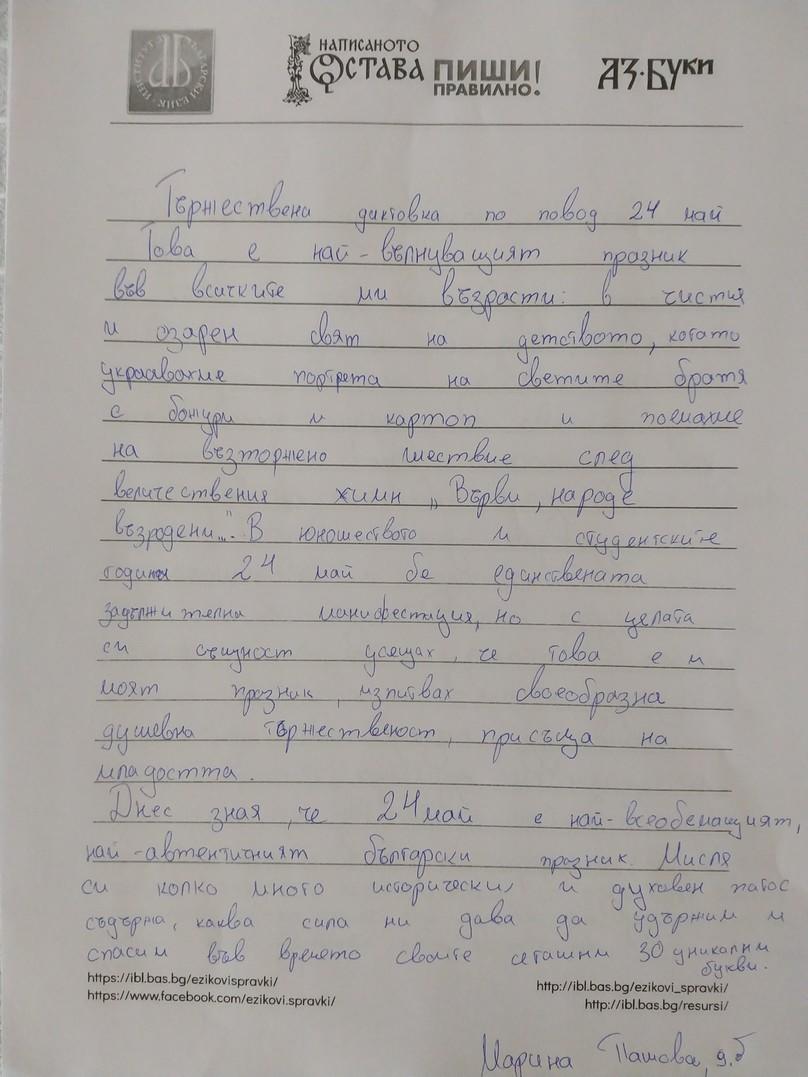 ИНСТИТУТ ЗА БЪЛГАРСКИ ЕЗИК
НАПИСАНОТО ОСТАВА
ПИШИ ПРАВИЛНО!
АЗ·БУКИ
Тържествена диктовка по повод 24 май
Това е най-вълнуващият празник
във всичките ми възрасти: в чистия
и озарен свят на детството, когато
украсавахме портрета на светите братя
с божури и картоп и поемахме
на възторжено шествие след
величествения химн „Върви, народе
възродени...". В юношеството и студентските
години 24 май бе единствената
задължителна манифестация, но с цялата
си същност усещах, че това е и
моят празник, изпитвах своеобразна
душевна тържественост, присъща на
младостта.
Днес зная, че 24 май е най-всеобемащият,
най-автентичният български празник. Мисля
си колко много исторически и духовен патос
съдържа, каква сила ни дава да удържим и
спасим във времето своите сегашни 30 уникални
букви.
https://ibl.bas.bg/ezikovispravki/
http://ibl.bas.bg/ezikovi_spravki/
https://www.facebook.com/ezikovi.spravki/
http://ibl.bas.bg/resursi/
Марина Пашова, 9.б